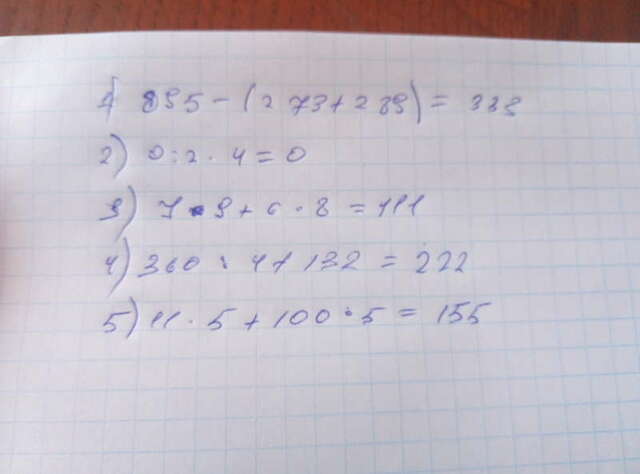 1) 895 - (273 + 289) = 333
2) 0 : 2 · 4 = 0
3) 7 · 9 + 6 · 8 = 111
4) 360 : 4 + 132 = 222
5) 11 · 5 + 100 : 5 = 155